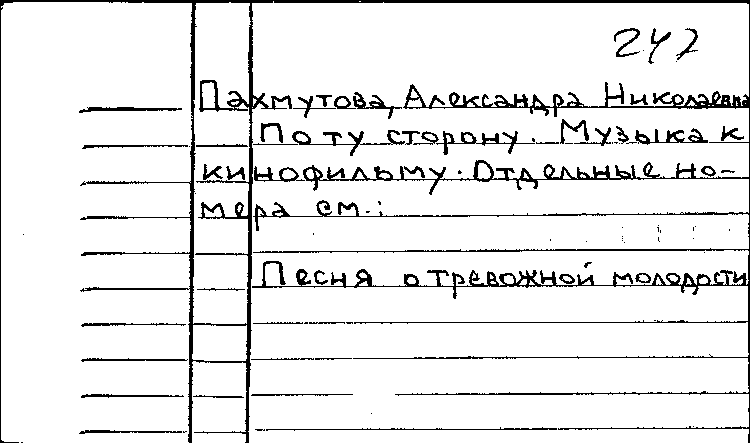 247
Пахмутова, Александра Николаевна
По ту сторону. Музыка к
кинофильму. Отдельные но-
мера см.:
Песня о тревожной молодости